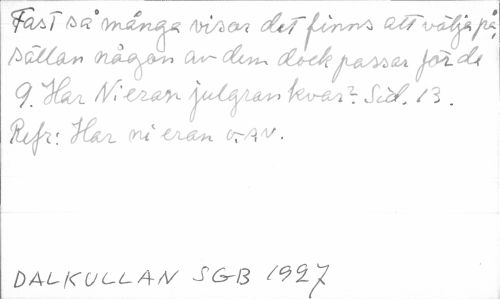 Fast så många visor det finns att välja på,
sällan någon av dem dock passar för de
9. Har Ni eran julgran kvar? Sid. 13.
Refr: Har ni eran o.s.v.
DALKULLAN SGB 1927